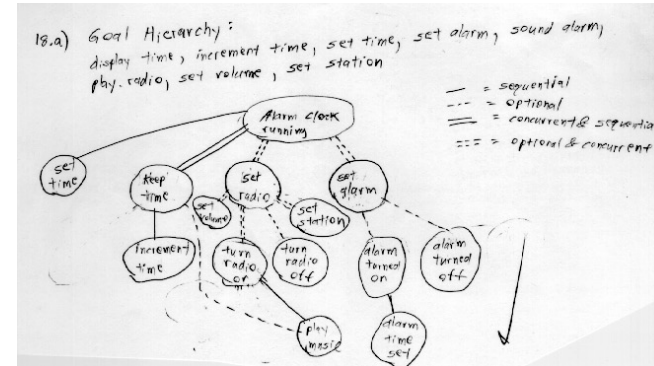 18.a) Goal Hierarchy:
display time, increment time, set time, set alarm, sound alarm,
play radio, set volume, set station
— = sequential
--- = optional
== = concurrent & sequential
=== = optional & concurrent
Alarm clock
running
set
time
keep
time
set
radio
set
alarm
set
volume
set
station
increment
time
turn
radio
on
turn
radio
off
alarm
turned
on
alarm
turned
off
play
music
alarm
time
set